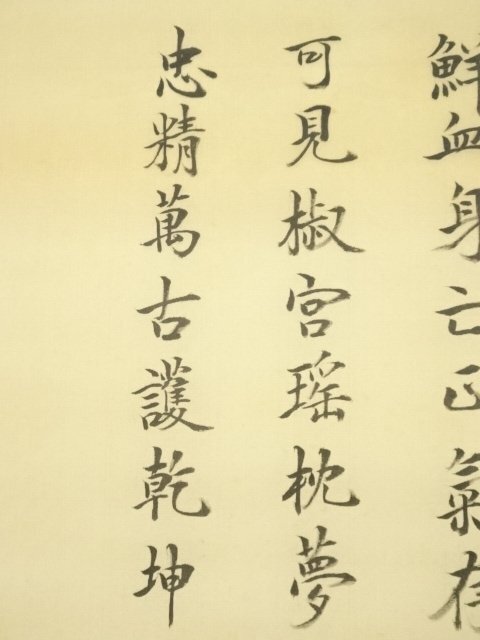 鮮血身亡正氣存
可見椒宮瑶枕夢
忠精萬古護乾坤